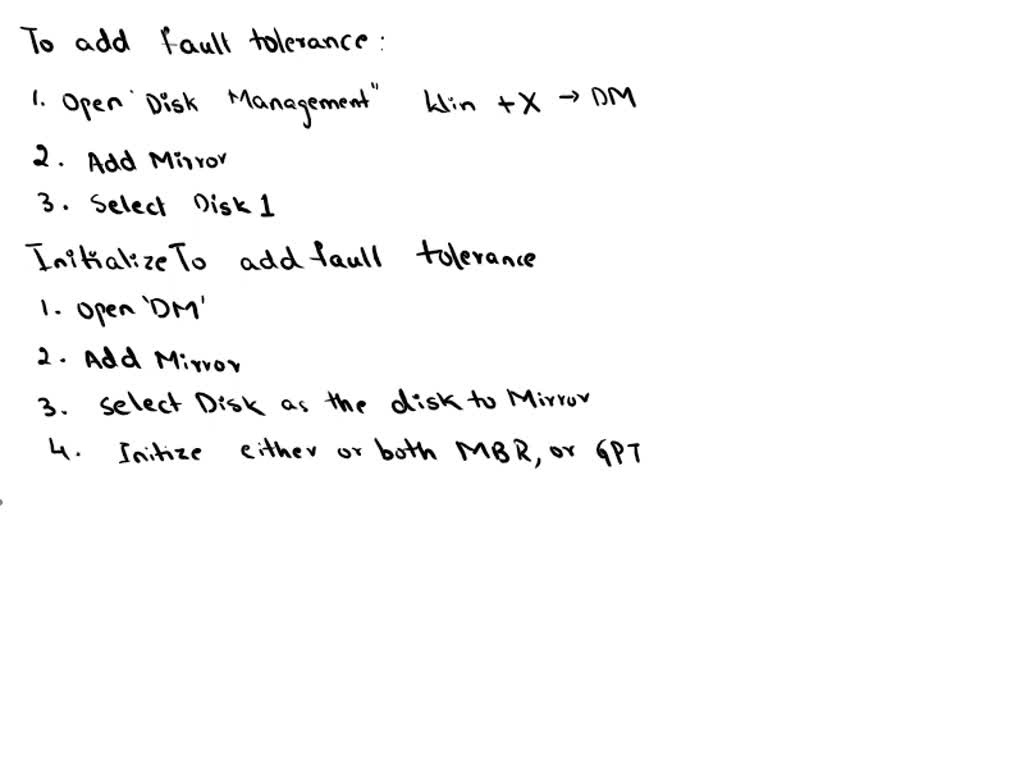 To add fault tolerance:
1. Open 'Disk Management" Win + X → DM
2. Add Mirror
3. Select Disk 1
Initialize To add fault tolerance
1. Open 'DM'
2. Add Mirror
3. Select Disk as the disk to Mirror
4. Initize either or both MBR, or GPT